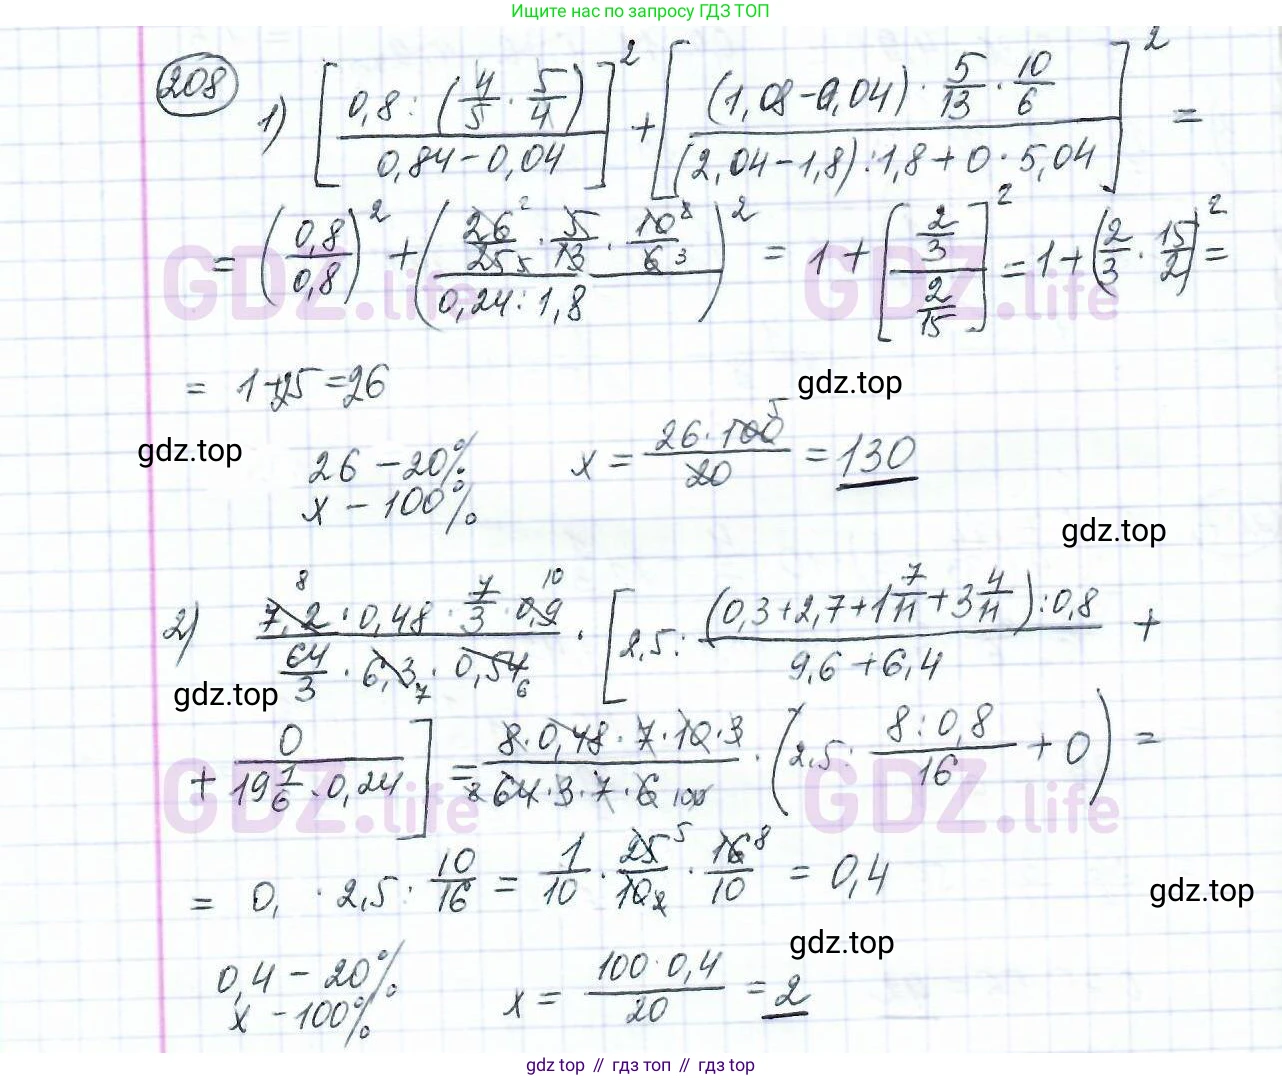 Ищите нас по запросу ГДЗ ТОП
208
1) [0,8 : (4/5 · 5/4) / (0,84 − 0,04)]² + [(1,08 − 0,04) · 5/13 · 10/6 / ((2,04 − 1,8) : 1,8 + 0 · 5,04)]² =
= (0,8/0,8)² + (26/25 · 5/13 · 10/6 / (0,24 : 1,8))² = 1 + [2/3 / 2/15]² = 1 + (2/3 · 15/2)² =
GDZ.life GDZ.life
= 1 + 25 = 26
gdz.top
gdz.top
26 − 20% x = 26 · 100 / 20 = 130
x − 100%
gdz.top
2) 7,2 · 0,48 · 7/3 · 0,9 / (64/3 · 6,3 · 0,54) · [2,5 : (0,3 + 2,7 + 1 7/11 + 3 4/11) : 0,8 / (9,6 + 6,4) +
gdz.top
+ 0 / (19 1/6 · 0,24)] = 8 · 0,48 · 7 · 10 · 3 / (64 · 3 · 7 · 6) · (2,5 : 8 : 0,8 / 16 + 0) =
GDZ.life GDZ.life
= 0, · 2,5 : 10/16 = 1/10 · 25/10 · 16/10 = 0,4
gdz.top
gdz.top
0,4 − 20% x = 100 · 0,4 / 20 = 2
x − 100%
gdz.top // гдз топ // gdz.top